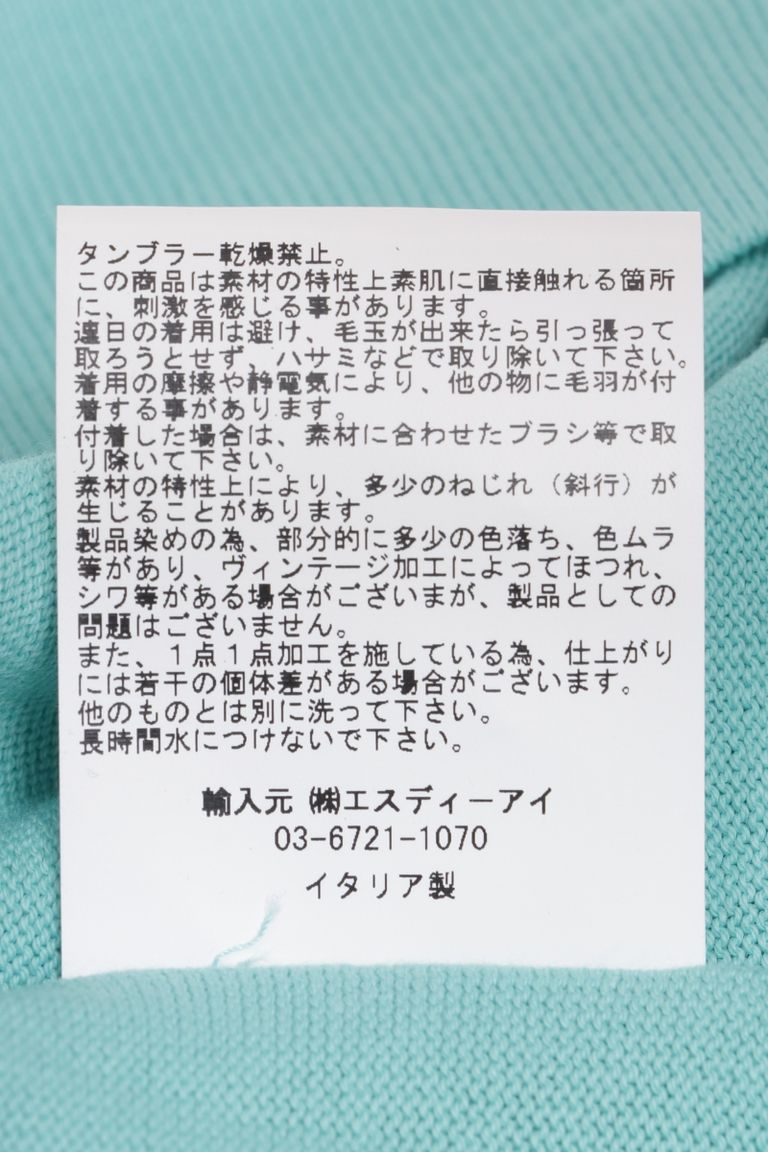 タンブラー乾燥禁止。
この商品は素材の特性上素肌に直接触れる箇所
に、刺激を感じる事があります。
連日の着用は避け、毛玉が出来たら引っ張って
取ろうとせず、ハサミなどで取り除いて下さい。
着用の摩擦や静電気により、他の物に毛羽が付
着する事があります。
付着した場合は、素材に合わせたブラシ等で取
り除いて下さい。
素材の特性上により、多少のねじれ（斜行）が
生じることがあります。
製品染めの為、部分的に多少の色落ち、色ムラ
等があり、ヴィンテージ加工によってほつれ、
シワ等がある場合がございまが、製品としての
問題はございません。
また、１点１点加工を施している為、仕上がり
には若干の個体差がある場合がございます。
他のものとは別に洗って下さい。
長時間水につけないで下さい。
輸入元 ㈱エスディーアイ
03-6721-1070
イタリア製